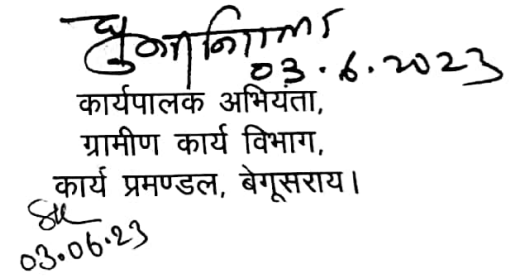 03.6.2023
कार्यपालक अभियंता,
ग्रामीण कार्य विभाग,
कार्य प्रमण्डल, बेगूसराय।
03.06.23